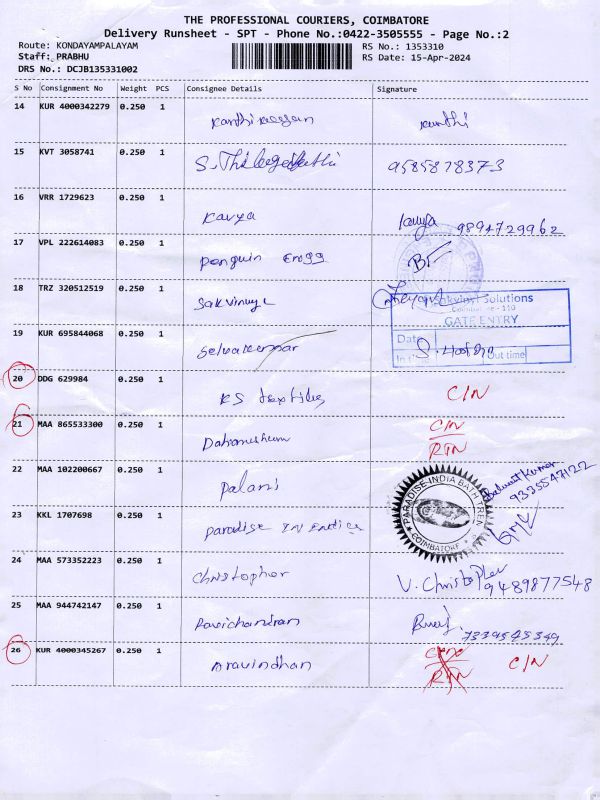 THE PROFESSIONAL COURIERS, COIMBATORE
Delivery Runsheet - SPT - Phone No.:0422-3505555 - Page No.:2
Route: KONDAYAMPALAYAM RS No.: 1353310
Staff: PRABHU RS Date: 15-Apr-2024
DRS No.: DCJB135331002
S No Consignment No Weight PCS Consignee Details Signature
14 KUR 4000342279 0.250 1
Kanthi
15 KVT 3058741 0.250 1
9585878373
16 VRR 1729623 0.250 1
Kavya Kavya 9894729962
17 VPL 222614083 0.250 1
Penguin
18 TRZ 320512519 0.250 1
Solutions
Coimbatore - 110
GATE ENTRY
Date
19 KUR 695844068 0.250 1
Selvakumar
In t Out time
20 DDG 629984 0.250 1
KS textiles C/N
21 MAA 865533300 0.250 1
C/N
RTN
22 MAA 102200667 0.250 1
Palani
9335547122
PARADISE-INDIA BATH TREN
COIMBATORE
23 KKL 1707698 0.250 1
Paradise
24 MAA 573352223 0.250 1
Christopher V. Christopher
9489877548
25 MAA 944742147 0.250 1
Ravichandran
7339545349
26 KUR 4000345267 0.250 1
Aravindhan C/N
RTN